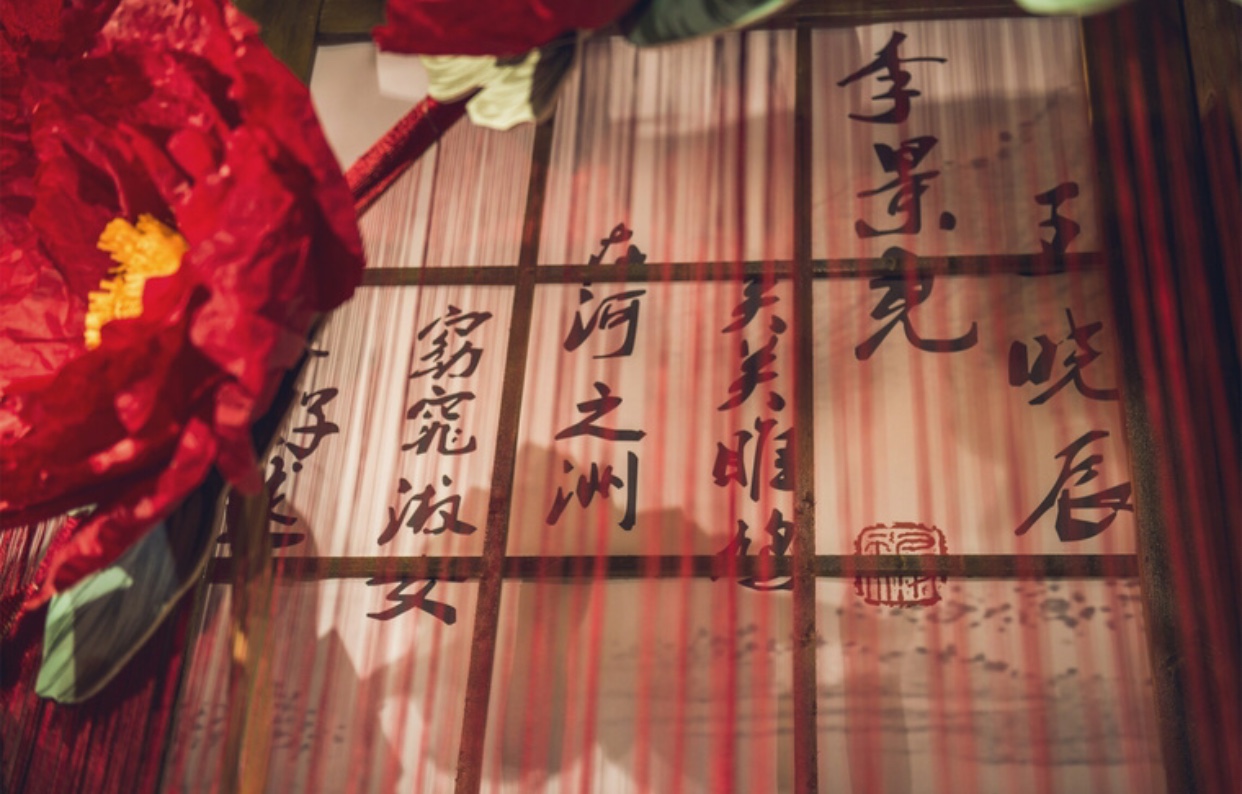 王晓辰
李景
关关雎鸠
在河之洲
窈窕淑女
子逑